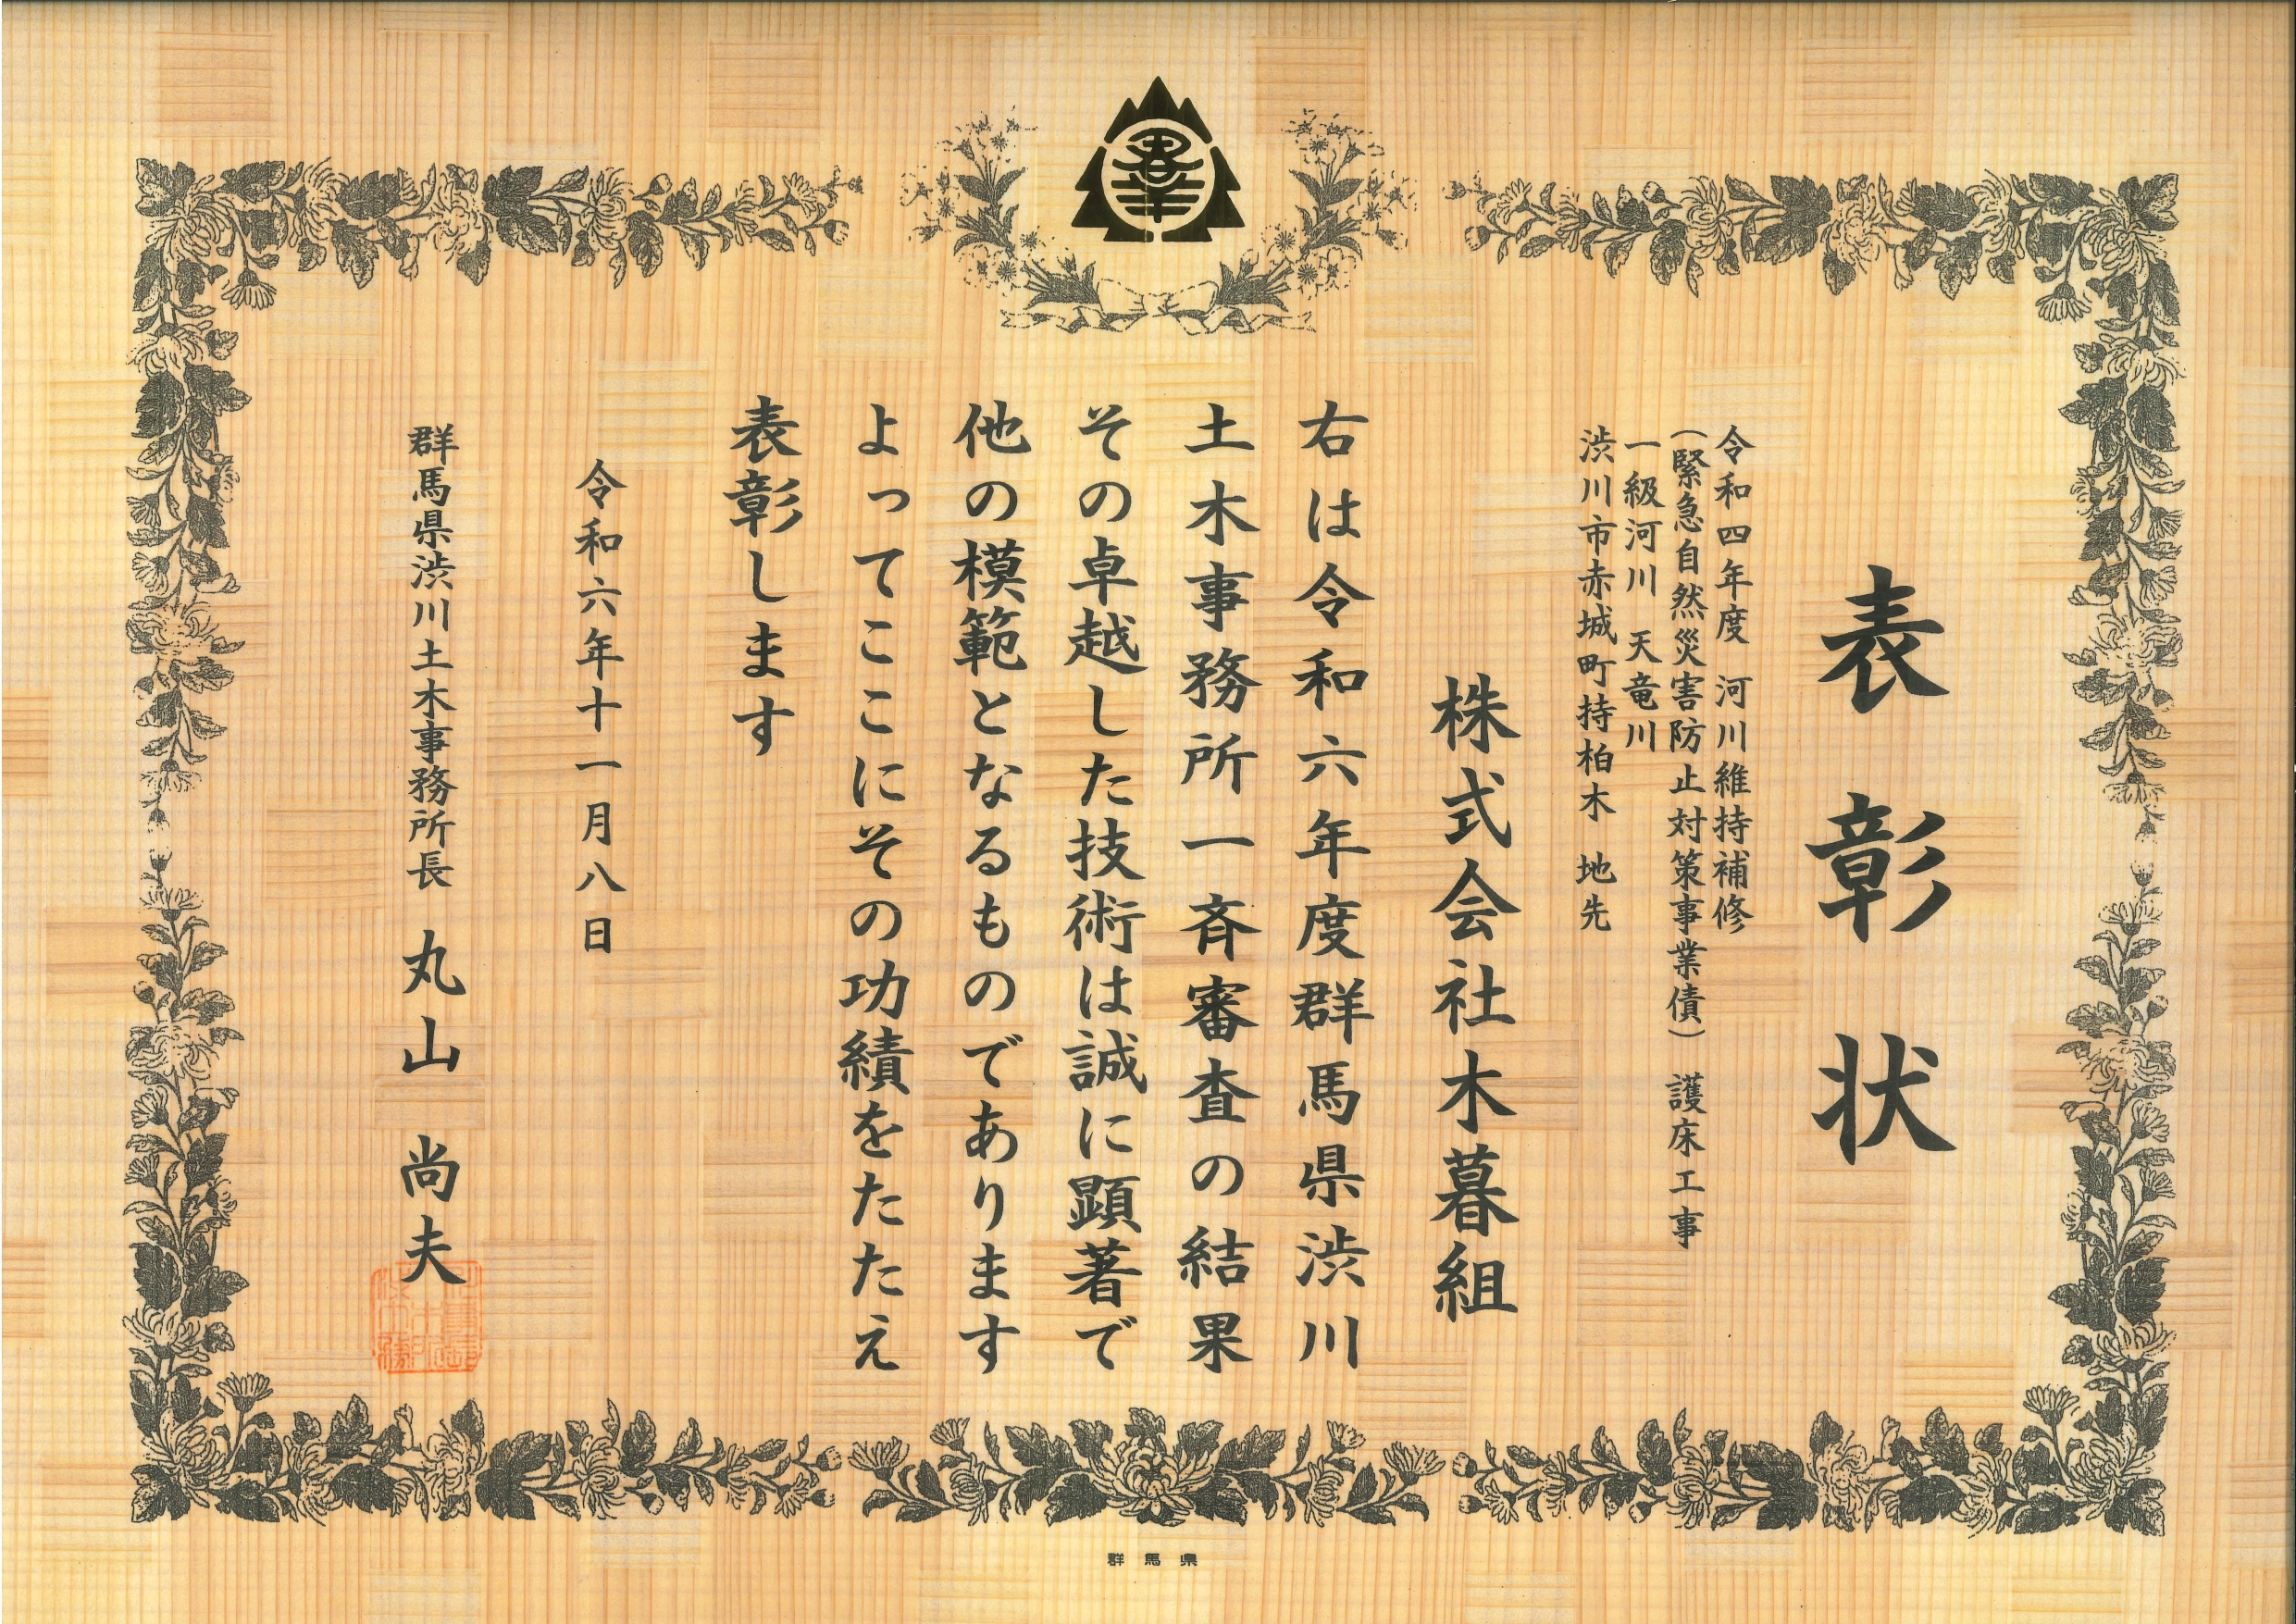 表彰状
令和四年度 河川維持補修
(緊急自然災害防止対策事業債) 護床工事
一級河川 天竜川
渋川市赤城町持柏木 地先
株式会社木暮組
右は令和六年度群馬県渋川
土木事務所一斉審査の結果
その卓越した技術は誠に顕著で
他の模範となるものであります
よってここにその功績をたたえ
表彰します
令和六年十一月八日
群馬県渋川土木事務所長 丸山 尚夫
群馬県